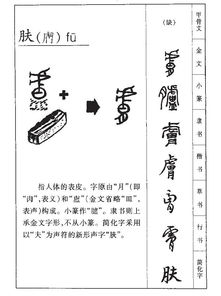 肤(膚) fū
指人体的表皮。字原由“月”(即
“肉”,表义)和“盧”(金文省略“皿”,
表声)构成。小篆作“臚”。隶书则上
承金文字形,不从小篆。简化字采用
以“夫”为声符的新形声字“肤”。
(缺)
膚
臚
膚
膚
膚
膚
肤
甲骨文
金文
小篆
隶书
楷书
草书
行书
简化字